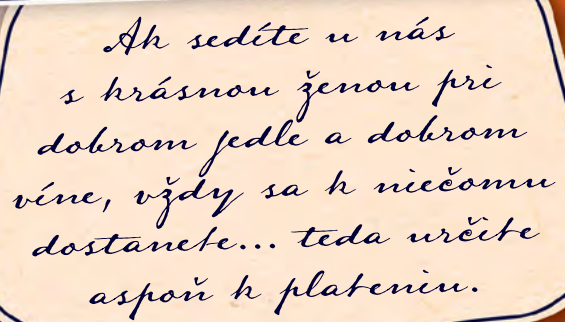 Ak sedíte u nás
s krásnou ženou pri
dobrom jedle a dobrom
víne, vždy sa k niečomu
dostanete... teda určite
aspoň k plateniu.